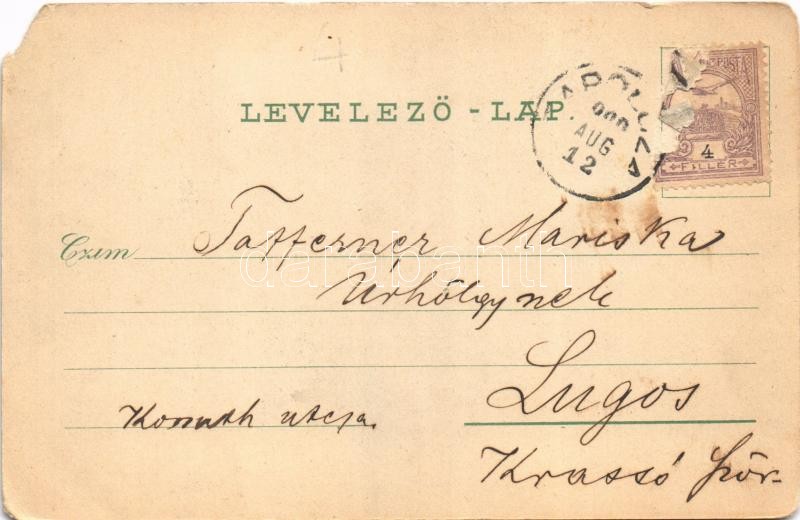 LEVELEZŐ - LAP.
900
AUG
12
POSTA
4
FILLÉR
Czim
Tafferner Mariska
darabanth
Urhölgynek
Lugos
Kossuth utcza.
Krassó ször-